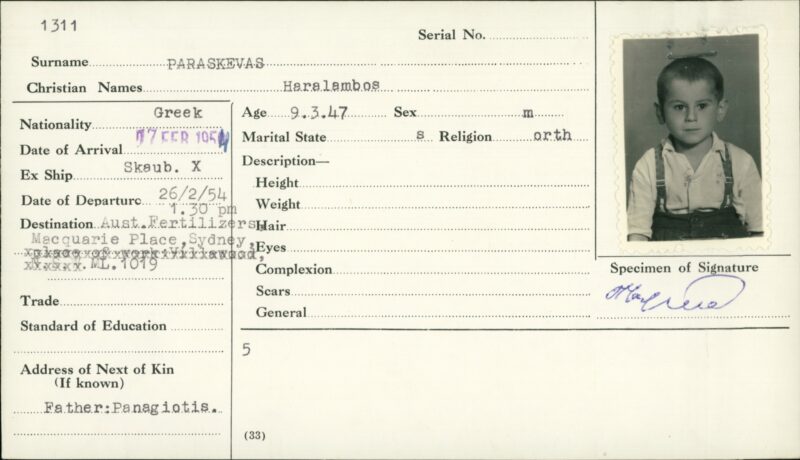 1311
Serial No.
Surname PARASKEVAS
Christian Names Haralambos
Nationality Greek
Date of Arrival 17 FEB 1954
Ex Ship Skaub. X
Date of Departure 26/2/54
1.30 pm
Destination Aust.Fertilizers
Macquarie Place, Sydney,
place of work:Villawood,
ML.1019
Trade
Standard of Education
Address of Next of Kin
(If known)
Father:Panagiotis.
Age 9.3.47 Sex m
Marital State s Religion orth
Description—
Height
Weight
Hair
Eyes
Complexion
Scars
General
5
(33)
Specimen of Signature